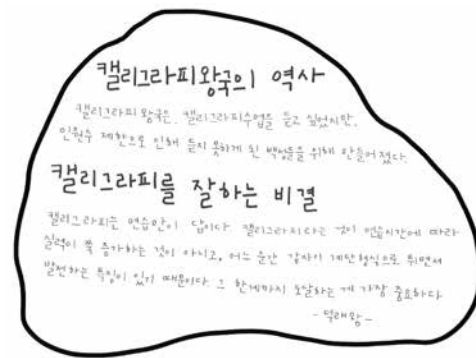 캘리그라피왕국의 역사
캘리그라피 왕국은, 캘리그라피수업을 듣고 싶었지만,
인원수 제한으로 인해 듣지 못하게 된 백성들을 위해 만들어졌다.
캘리그라피를 잘하는 비결
캘리그라피는 연습만이 답이다 캘리그라피라는 것이 연습시간에 따라
실력이 쭉 증가하는 것이 아니고, 어느 순간 갑자기 계단형식으로 뛰면서
발전하는 특징이 있기 때문이다 그 한계까지 도달하는 게 가장 중요하다
- 덕래왕 -